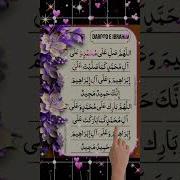 DAROOD E IBRAHIM
اَللّٰهُمَّ صَلِّ عَلٰى مُحَمَّدٍ وَّعَلٰٓى
اٰلِ مُحَمَّدٍ كَمَا صَلَّيْتَ عَلٰٓى
اِبْرَاهِيْمَ وَعَلٰٓى اٰلِ اِبْرَاهِيْمَ
اِنَّكَ حَمِيْدٌ مَّجِيْدٌ
اَللّٰهُمَّ بَارِكْ عَلٰى مُحَمَّدٍ وَّعَلٰٓى
اٰلِ مُحَمَّدٍ كَمَا بَارَكْتَ عَلٰٓى
اِبْرَاهِيْمَ وَعَلٰٓى اٰلِ اِبْرَاهِيْمَ
حَمِيْدٌ مَّجِيْدٌ